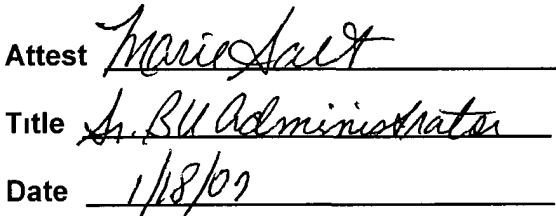 Attest Marie Salt
Title Sr. BU Administrator
Date 1/18/07